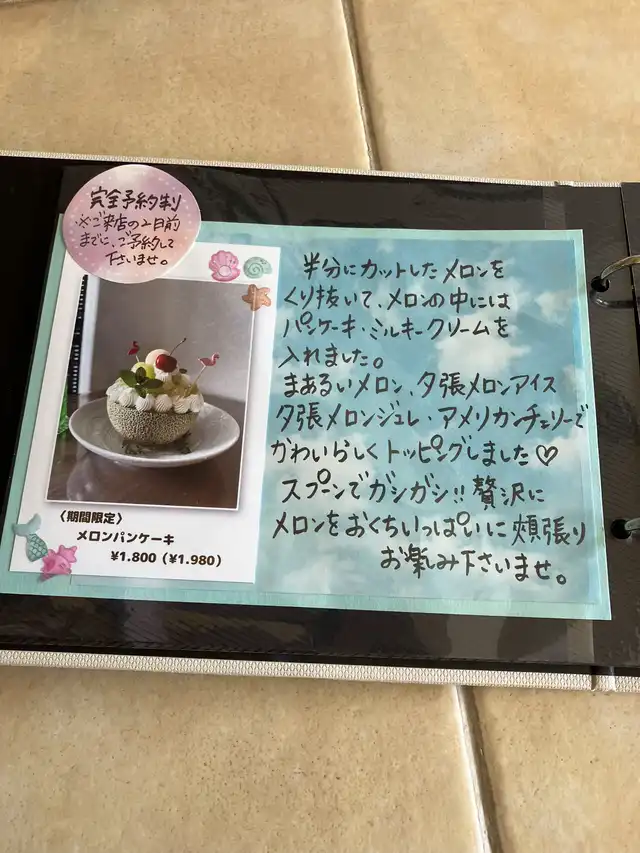 完全予約制
※ご来店の2日前
までに、ご予約して
下さいませ。
〈期間限定〉
メロンパンケーキ
¥1.800（¥1.980）
半分にカットしたメロンを
くり抜いて、メロンの中には
パンケーキ・ミルキークリームを
入れました。
まあるいメロン、夕張メロンアイス
夕張メロンジュレ・アメリカンチェリーで
かわいらしくトッピングしました♡
スプーンでガシガシ!!贅沢に
メロンをおくちいっぱいに頬張り
お楽しみ下さいませ。